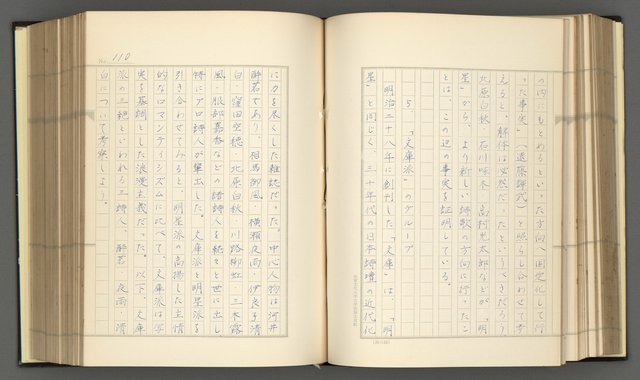 の内にもとめるという、た方向へ固定化して行
った事実」（「遺原詩式」）と照らし合わせて考
えると、解体は必然だったというべきだろう。
北原白秋、石川啄木、高村光太郎などが「明
星」から、より新しい詩歌の方向に行ったこ
とは、この辺の事実を証明している。
5 「文庫派」のグループ
明治二十八年に創刊した「文庫」は、「明
星」と同じく、三十年代の日本詩壇の近代化
No. 110
に力を尽くした雑誌だった。中心人物は河井
酔茗であり、相馬御風、横瀬夜雨、伊良子清
白、窪田空穂、北原白秋、川路柳虹、三木露
風、服部嘉香などの諸詩人を続々と世に出し、
特にプロ詩人が輩出した。文庫派と明星派を
引き合わせてみると、明星派の高揚した主情
的なロマンティシズムに比べて、文庫派は写
実を基調とした浪漫主義だった。以下、文庫
派の三絶といわれる三詩人、酔茗・夜雨・清
白について考察しよう。